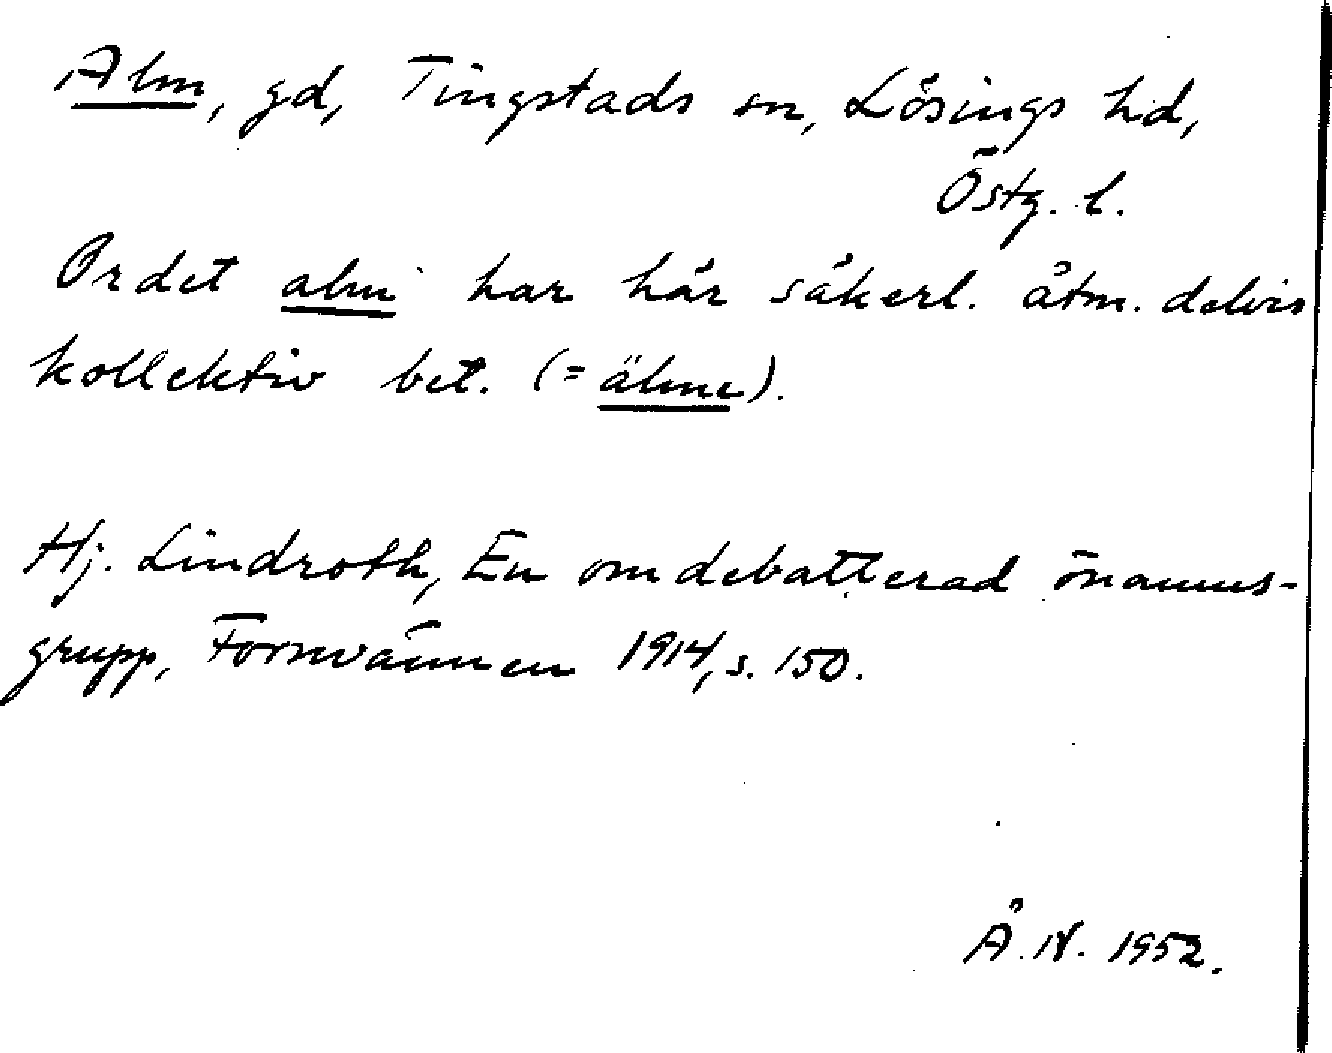 Alm, gd, Tingstads sn, Lösings hd,
Östg. l.
Ordet alm har här säkerl. åtm. delvis
kollektiv bet. (= älme).
Hj. Lindroth, En omdebatterad önamns-
grupp, Fornvännen 1914, s. 150.
Å. N. 1952.